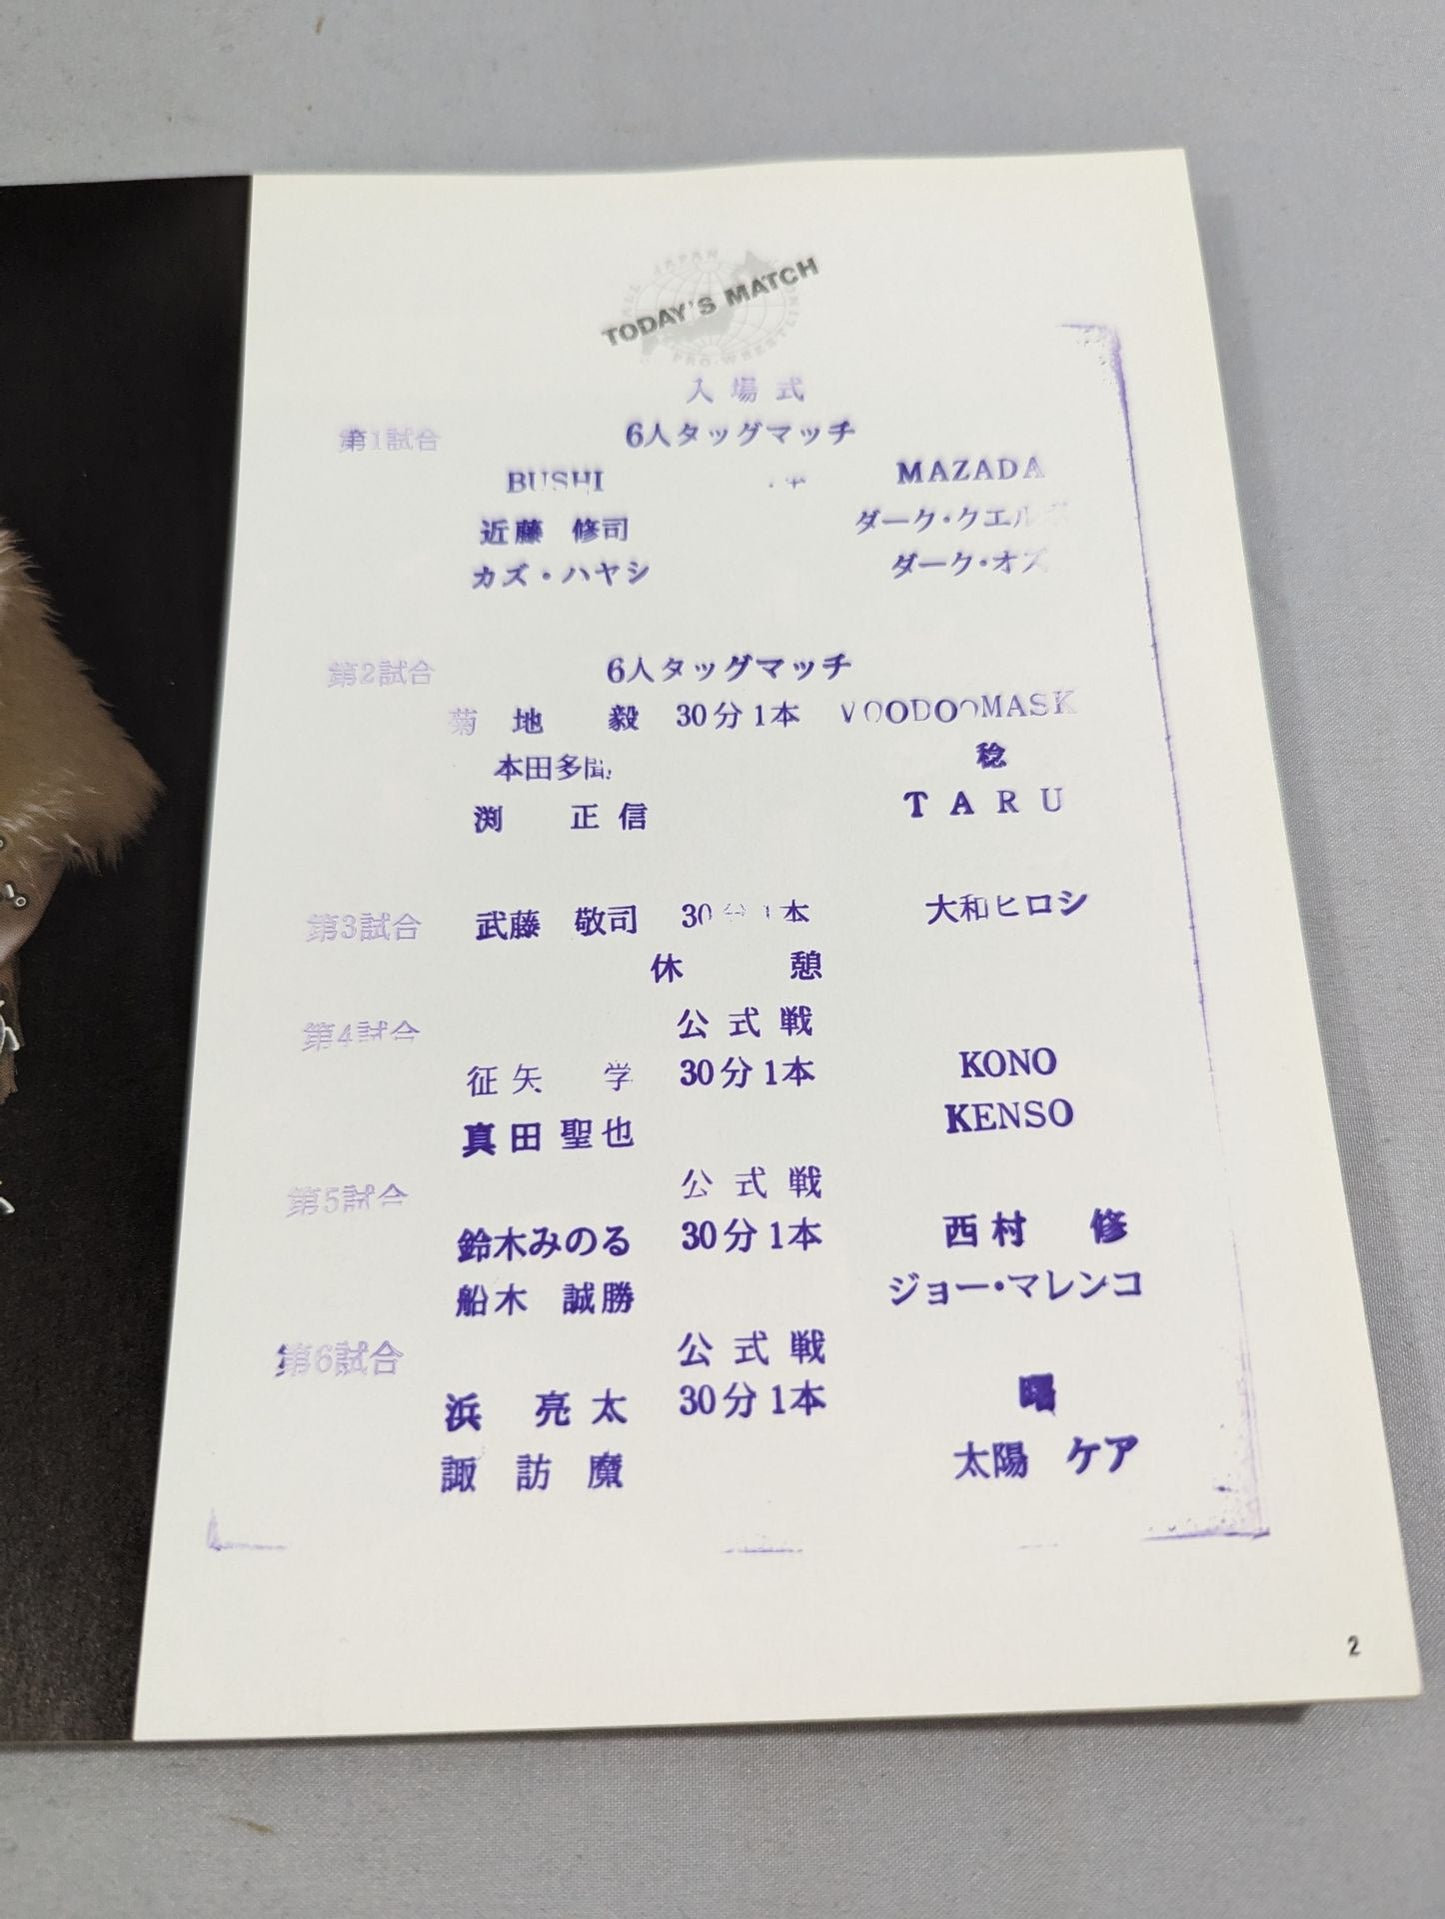 ALL JAPAN PRO-WRESTLING
TODAY'S MATCH
入場式
第1試合 6人タッグマッチ
BUSHI 本 MAZADA
近藤 修司 ダーク・クエル
カズ・ハヤシ ダーク・オズ
第2試合 6人タッグマッチ
菊地 毅 30分1本 VOODOOMASK
本田多聞 稔
渕 正信 TARU
第3試合 武藤 敬司 30分1本 大和ヒロシ
休 憩
第4試合 公式戦
征矢 学 30分1本 KONO
真田聖也 KENSO
第5試合 公式戦
鈴木みのる 30分1本 西村 修
船木 誠勝 ジョー・マレンコ
第6試合 公式戦
浜 亮太 30分1本 曙
諏訪魔 太陽 ケア
2